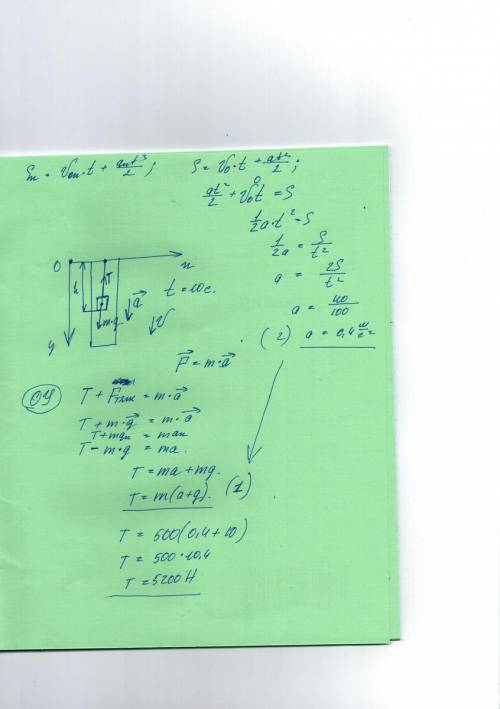 Sₙ = V₀ₙ·t + aₙt³/2 ;
S = V₀·t + at²/2 ;
at²/2 + V₀t = S
0
½a·t² = S
½a = S/t²
a = 2S/t²
a = 40/100
(2) a = 0,4 м/с²
O
x
h
T
m·g
a⃗
t = 10 с.
V⃗
y
F⃗ = m·a⃗
ОУ
T + Fтяж = m·a⃗
T + m·g⃗ = m·a⃗
T + mgx = max
T − m·g = ma.
T = ma + mg.
T = m(a+g). (1)
T = 500(0,4 + 10)
T = 500·10,4
T = 5200 Н